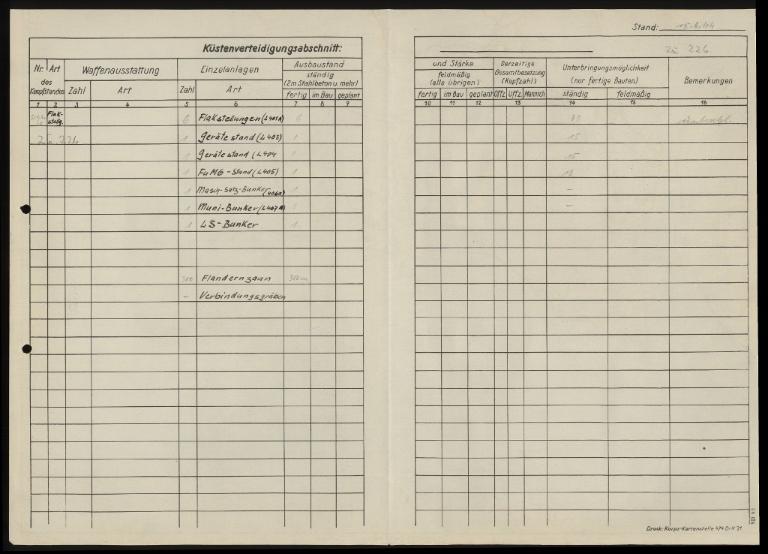 Stand:
Zü 226
Küstenverteidigungsabschnitt:
Nr. Art
des
Kampfstandes
Waffenausstattung
Zahl Art
Einzelanlagen
Zahl Art
Ausbaustand
ständig
(2m Stahlbeton u. mehr)
fertig im Bau geplant
und Stärke
feldmäßig
(alle übrigen)
fertig im Bau geplant
Derzeitige
Gesamtbesatzung
(Kopfzahl)
Offz. Uffz. Mannsch
Unterbringungsmöglichkeit
(nur fertige Bauten)
ständig feldmäßig
Bemerkungen
1 2 3 4 5 6 7 8 9 10 11 12 13 14 15 16
Flak-
stellg.
6 Flakstellungen (L401A) 6
Zü 226 1 Gerätestand (L403) 1 15
1 Gerätestand (L404 1 15
1 FuMG-Stand (L405) 1
1 Masch-Satz-Bunker 1 -
1 Muni-Bunker (L407A) 1 -
1 LS-Bunker 1
300 Flandernzaun 300 m
- Verbindungsgräben